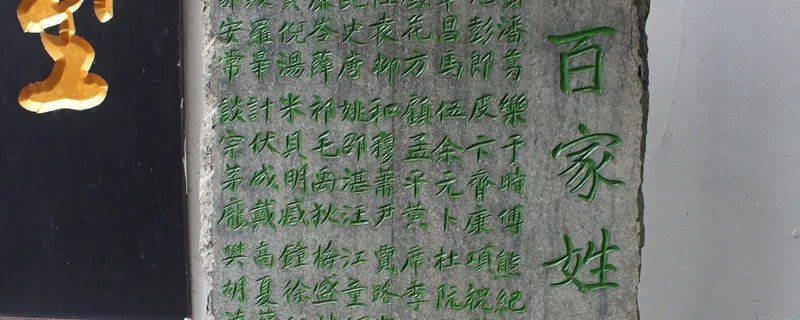 百家姓
潘葛樂于時傅熊紀
彭郎皮卞齊康項祝
昌馬伍余元卜杜阮
花方顧孟平黄席季
袁柳和穆蕭尹賈路
史唐姚邵湛汪江童
岑薛祁毛禹狄梅盛
倪湯米貝明臧鐘徐
羅畢計伏成戴高夏
安常談宋茅龐樊胡